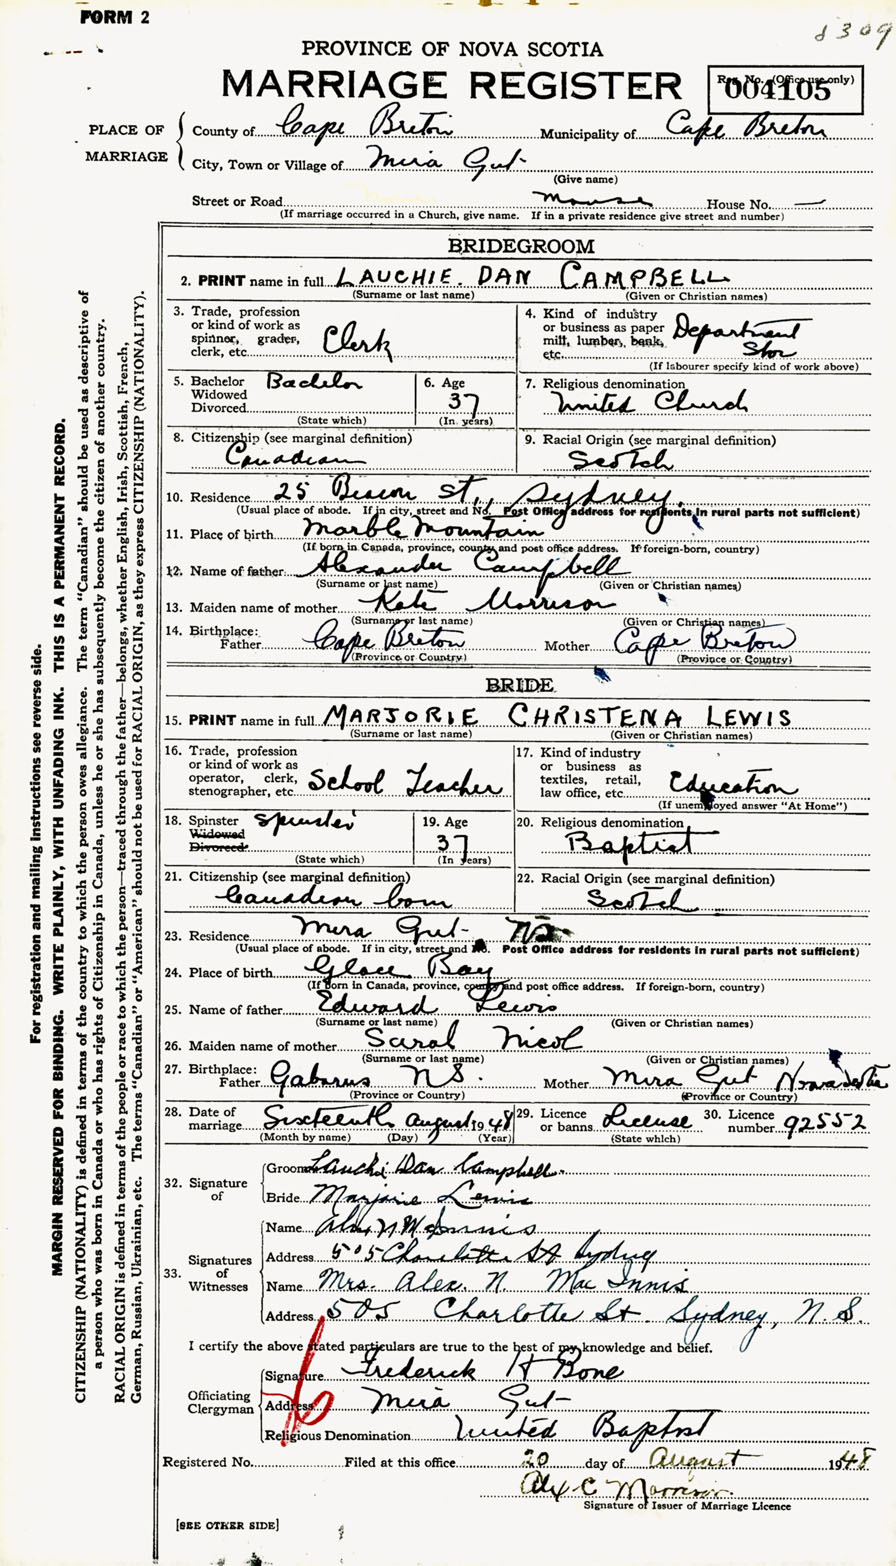 FORM 2
8309
PROVINCE OF NOVA SCOTIA
MARRIAGE REGISTER
Reg. No. (Office use only)
004105
PLACE OF MARRIAGE
County of Cape Breton Municipality of Cape Breton
City, Town or Village of Mira Gut
(Give name)
Street or Road House No. —
(If marriage occurred in a Church, give name. If in a private residence give street and number)
BRIDEGROOM
2. PRINT name in full LAUCHIE. DAN CAMPBELL
(Surname or last name) (Given or Christian names)
3. Trade, profession or kind of work as spinner, grader, clerk, etc. Clerk
4. Kind of industry or business as paper mill, lumber, bank, etc. Department Stor
(If labourer specify kind of work above)
5. Bachelor Widowed Divorced Bachelor
(State which)
6. Age 37
(In years)
7. Religious denomination United Church
8. Citizenship (see marginal definition) Canadian
9. Racial Origin (see marginal definition) Scotch
10. Residence 25 Beacon St., Sydney,
(Usual place of abode. If in city, street and No. Post Office address for residents in rural parts not sufficient)
11. Place of birth Marble Mountain
(If born in Canada, province, county and post office address. If foreign-born, country)
12. Name of father Alexander Campbell
(Surname or last name) (Given or Christian names)
13. Maiden name of mother Kate Morrison
(Surname or last name) (Given or Christian names)
14. Birthplace: Father Cape Breton Mother Cape Breton
(Province or Country) (Province or Country)
BRIDE
15. PRINT name in full MARJORIE CHRISTENA LEWIS
(Surname or last name) (Given or Christian names)
16. Trade, profession or kind of work as operator, clerk, stenographer, etc. School Teacher
17. Kind of industry or business as textiles, retail, law office, etc. Education
(If unemployed answer "At Home")
18. Spinster Widowed Divorced Spinster
(State which)
19. Age 37
(In years)
20. Religious denomination Baptist
21. Citizenship (see marginal definition) Canadian born
22. Racial Origin (see marginal definition) Scotch
23. Residence Mira Gut N.S.
(Usual place of abode. If in city, street and No. Post Office address for residents in rural parts not sufficient)
24. Place of birth Glace Bay
(If born in Canada, province, county and post office address. If foreign-born, country)
25. Name of father Edward Lewis
(Surname or last name) (Given or Christian names)
26. Maiden name of mother Sarah Nicol
(Surname or last name) (Given or Christian names)
27. Birthplace: Father Gabarus N.S. Mother Mira Gut Nova Scotia
(Province or Country) (Province or Country)
28. Date of marriage Sixteenth August 1948
(Month by name) (Day) (Year)
29. Licence or banns License
(State which)
30. Licence number 92552
32. Signature of
Groom Lauchie Dan Campbell.
Bride Marjorie Lewis
33. Signatures of Witnesses
Name Alex N McInnis
Address 505 Charlotte St Sydney
Name Mrs. Alex. N. MacInnis
Address 505 Charlotte St. Sydney, N.S.
I certify the above stated particulars are true to the best of my knowledge and belief.
Officiating Clergyman
Signature Frederick H Bone
Address Mira Gut
Religious Denomination United Baptist
Registered No. Filed at this office 20 day of August 1948
Alex C Morrison
Signature of Issuer of Marriage Licence
[SEE OTHER SIDE]
For registration and mailing instructions see reverse side.
MARGIN RESERVED FOR BINDING. WRITE PLAINLY, WITH UNFADING INK. THIS IS A PERMANENT RECORD.
CITIZENSHIP (NATIONALITY) is defined in terms of the country to which the person owes allegiance. The term "Canadian" should be used as descriptive of
a person who was born in Canada or who has rights of Citizenship in Canada, unless he or she has subsequently become the citizen of another country.
RACIAL ORIGIN is defined in terms of the people or race to which the person—traced through the father—belongs, whether English, Irish, Scottish, French,
German, Russian, Ukrainian, etc. The terms "Canadian" or "American" should not be used for RACIAL ORIGIN, as they express CITIZENSHIP (NATIONALITY).